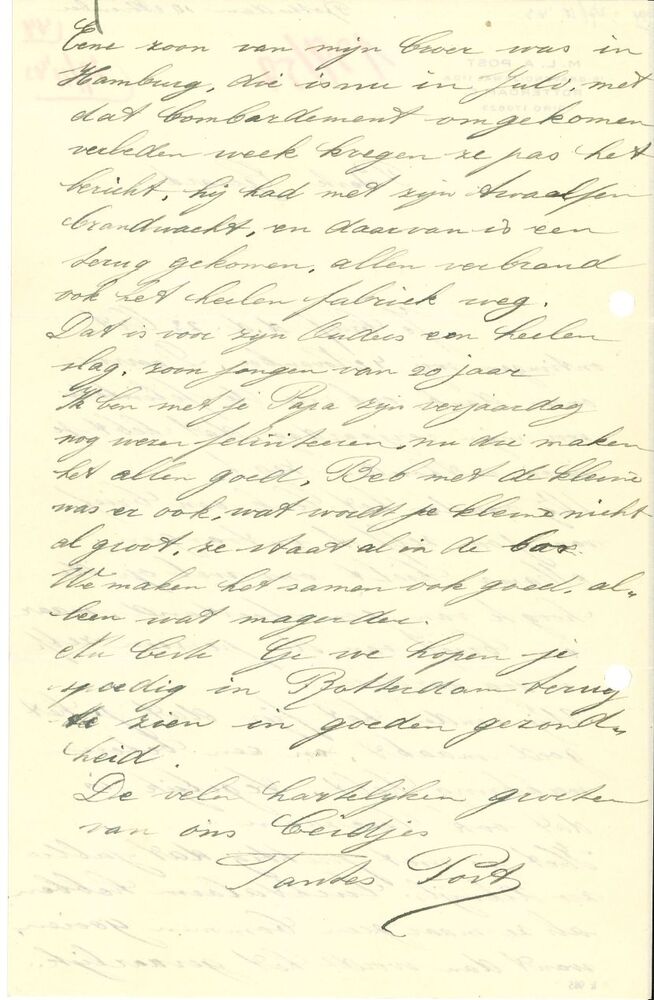 Eene zoon van mijn broer was in
Hamburg, die is nu in Juli, met
dat bombardement omgekomen
verleden week kregen ze pas het
bericht, hij had met zijn twaalfen
brandwacht, en daarvan is een
terug gekomen, allen verbrand
ook het heelen fabriek weg.
Dat is voor zijn Ouders een heelen
slag, zoon jongen van 20 jaar
Ik ben met je Papa zijn verjaardag
nog wezen feliciteeren, nu die maken
het allen goed, Beb met de kleine
was er ook, wat wordt je kleine nicht
al groot, ze staat al in de box
We maken het samen ook goed, al„
leen wat magerder.
Nu beste Ge we hopen je
spoedig in Rotterdam terug
te zien in goeden gezond„
heid.
De velen hartelijken groeten
van ons beidjes
Tantes Post
M. L. A. POST
ROTTERDAM